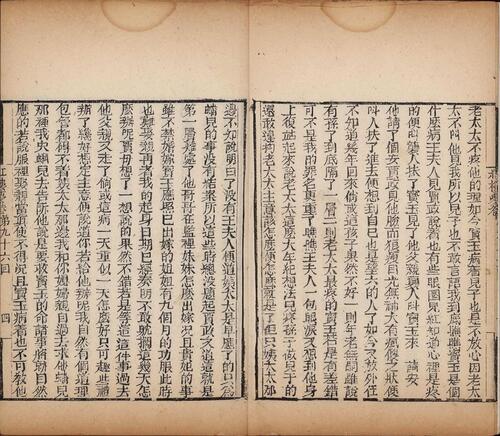 老太太不疼他的理如今寶玉病着兒子也是不放心因老太
太不叫他見我所以兒子也不敢言語我到底瞧瞧寶玉是個
什麼病王夫人見賈政說着也有些眼圈兒紅知道心裡是疼
的便叫襲人扶了寶玉來寶玉見了他父親襲人叫他請安
他請了個安賈政見他臉面很瘦目光無神大有瘋傻之狀便
叫人扶了進去便想到自己也是望六的人了如今又放外任
不知道幾年回來倘或這孩子果然不好一則年老無嗣雖說
有孫子到底隔了一層二則老太太最疼的是寶玉若有差錯
可不是我的罪名更重了瞧瞧王夫人一包眼淚又想到他身
上復站起來說老太太這麼大年紀想法兒疼孫子做兒子的
還敢違拗老太太主意該怎麼便怎麼就是了但只姨太太那
邊不知說明白了沒有王夫人便道姨太太是早應了的只為
蟠兒的事沒有結案所以這些時總沒提起賈政又道這就是
第一層的難處他哥哥在監裡妹妹怎麼出嫁況且貴妃的事
雖不禁婚嫁寶玉應照已出嫁的姐姐有九個月的功服此時
也難娶親再者我的起身日期已經奏明不敢躭擱這幾天怎
麼辦呢賈母想了一想說的果然不錯若是等這幾件事過去
他父親又走了倘或這病一天重似一天怎麼好只可越些禮
辦了纔好想定主意便說道你若給他辦呢我自然有個道理
包管都碍不着姨太太那邊我和你媳婦親自過去求他蟠兒
那裡我央蝌兒去告訴他說是要救寶玉的命諸事將就自然
應的若說服裡娶親當真使不得況且寶玉病着也不可教他
紅樓夢 第九十六回 四